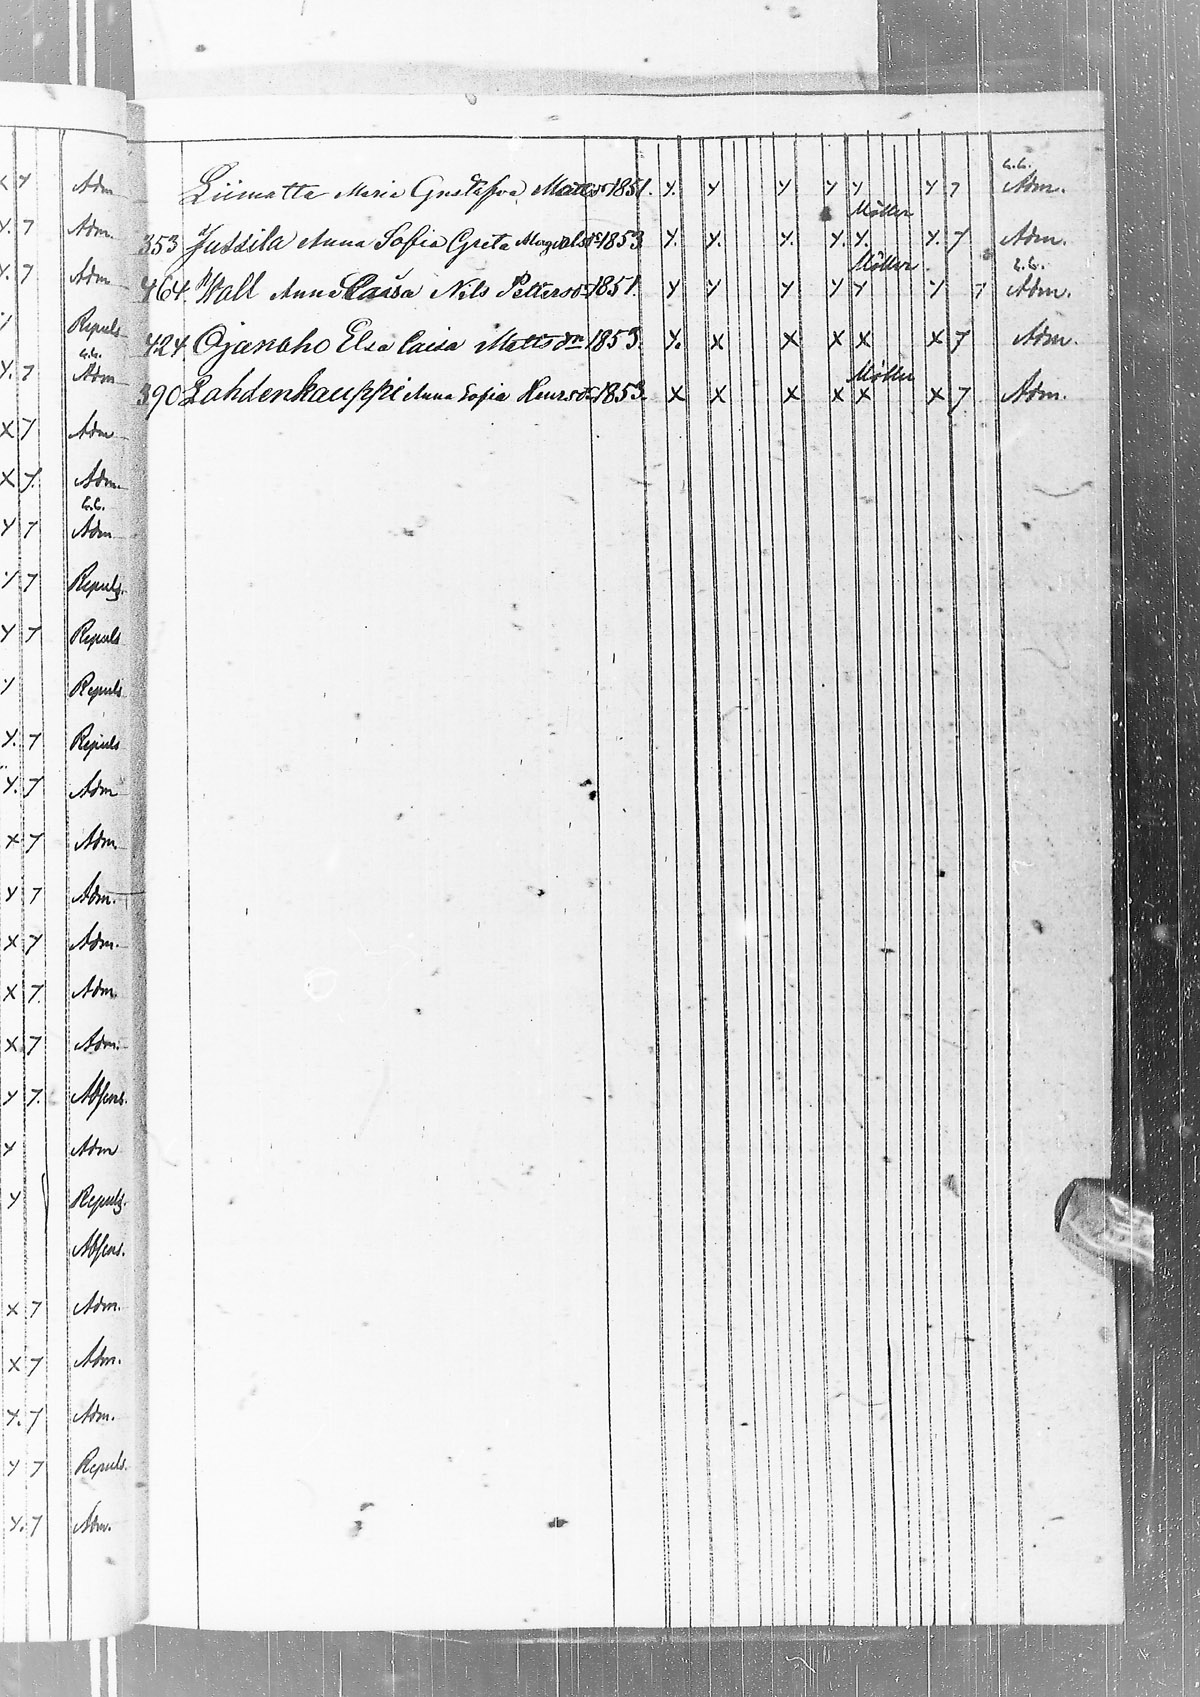 x 7 Adm
y. 7 Adm.
y. 7 Adm
y Repuls
y. 7 Adm
x 7 Adm
x 7. Adm.
y 7 Adm
y 7 Repuls.
y 7 Repuls
y Repuls
y. 7 Repuls
y. 7 Adm
x 7 Adm.
y 7 Adm.
x 7 Adm.
x 7. Adm.
x. 7 Adm.
y 7. Absens.
y Adm
y Repuls.
Absens.
x 7 Adm.
x 7 Adm.
y. 7 Adm.
y 7 Repuls.
y. 7 Adm.
Liimatta Maria Gustafva Mattsdr 1851. y. y y y y y 7 Adm.
Möller
353 Jussila Anna Sofia Greta 1853 y. y. y. y. y. y. 7 Adm.
Möller
464 Wall Anna Caisa Nils Pettersdr 1851. y y y y y y 7 Adm.
424 Ojanaho Elsa Caisa Mattsdr 1853. y. x x x x x 7 Adm.
Möller
390 Lahdenkauppi Anna Sofia Henrsdr 1853. x x x x x x 7 Adm.